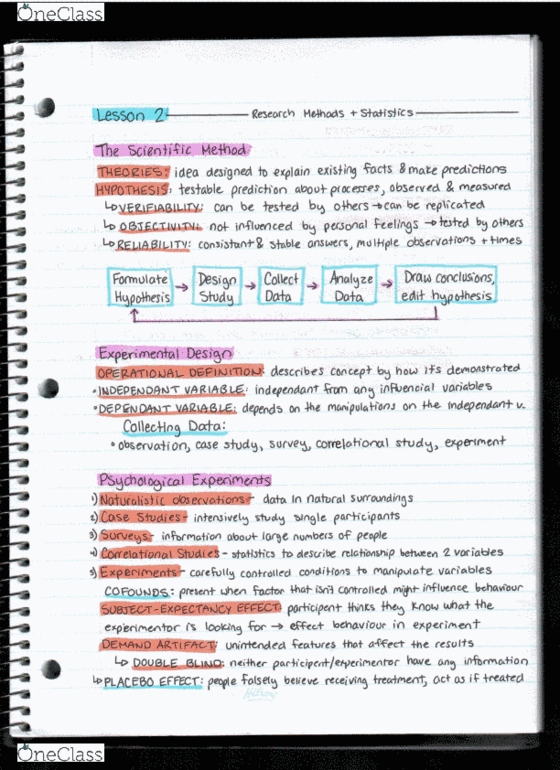 OneClass
Lesson 2: Research Methods + Statistics
The Scientific Method
THEORIES: idea designed to explain existing facts & make predictions
HYPOTHESIS: testable prediction about processes, observed & measured
↳VERIFIABILITY: can be tested by others → can be replicated
↳OBJECTIVITY: not influenced by personal feelings → tested by others
↳RELIABILITY: consistant & stable answers, multiple observations + times
Formulate Hypothesis → Design Study → Collect Data → Analyze Data → Draw conclusions, edit hypothesis
Experimental Design
OPERATIONAL DEFINITION: describes concept by how its demonstrated
•INDEPENDANT VARIABLE: independant from any influencial variables
•DEPENDANT VARIABLE: depends on the manipulations on the independant v.
Collecting Data:
• observation, case study, survey, correlational study, experiment
Psychological Experiments
1) Naturalistic observations - data in natural surroundings
2) Case Studies - intensively study single participants
3) Surveys - information about large numbers of people
4) Correlational Studies - statistics to describe relationship between 2 variables
5) Experiments - carefully controlled conditions to manipulate variables
COFOUNDS: present when factor that isn't controlled might influence behaviour
SUBJECT-EXPECTANCY EFFECT: participant thinks they know what the
experimentor is looking for → effect behaviour in experiment
DEMAND ARTIFACT: unintended features that affect the results
↳ DOUBLE BLIND: neither participant/experimentor have any information
↳PLACEBO EFFECT: people falsely believe receiving treatment, act as if treated
OneClass